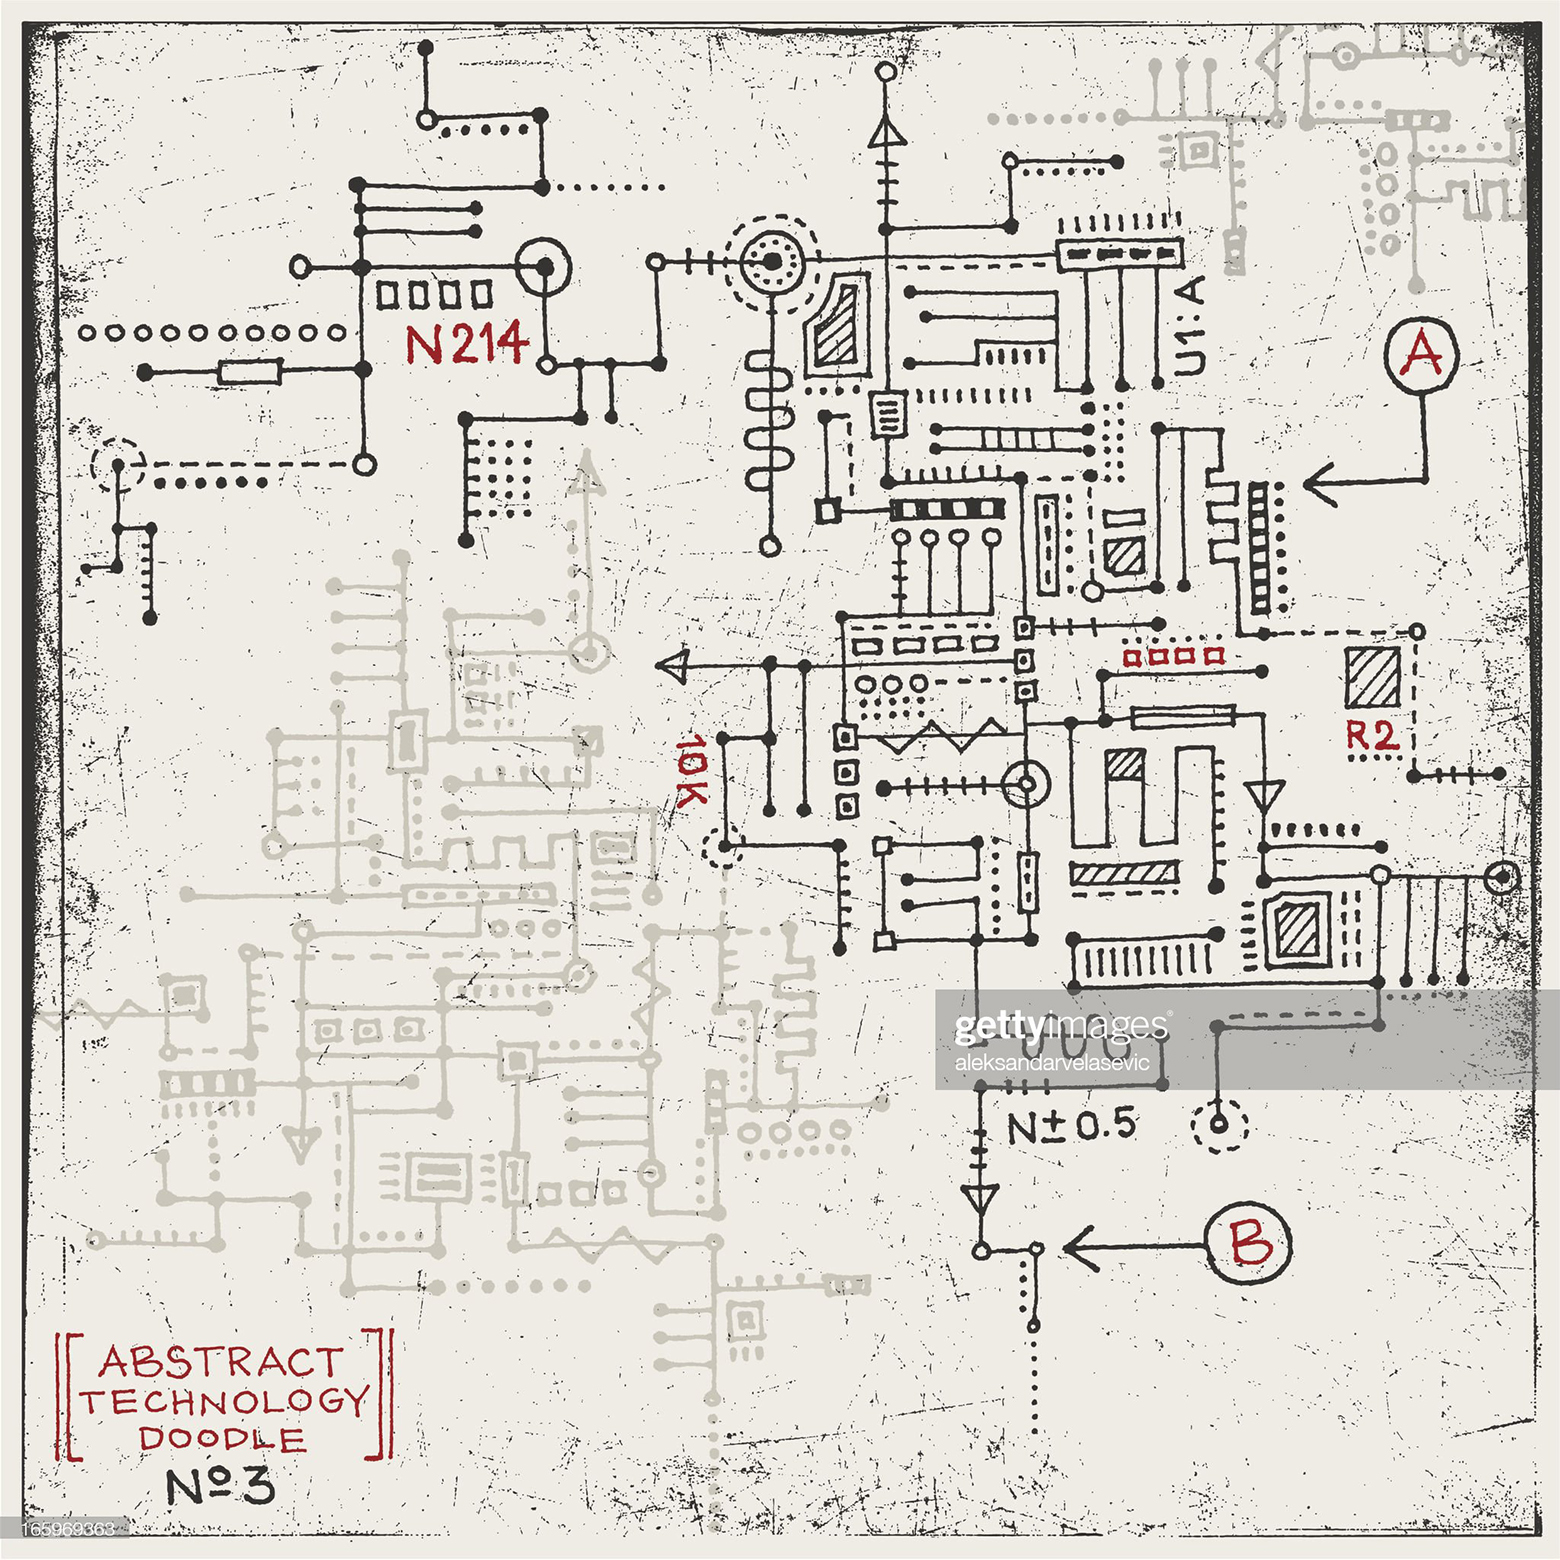 N214
U1:A
A
10K
R2
gettyimages®
aleksandarvelasevic
N±0.5
B
ABSTRACT
TECHNOLOGY
DOODLE
Nº3
165969363